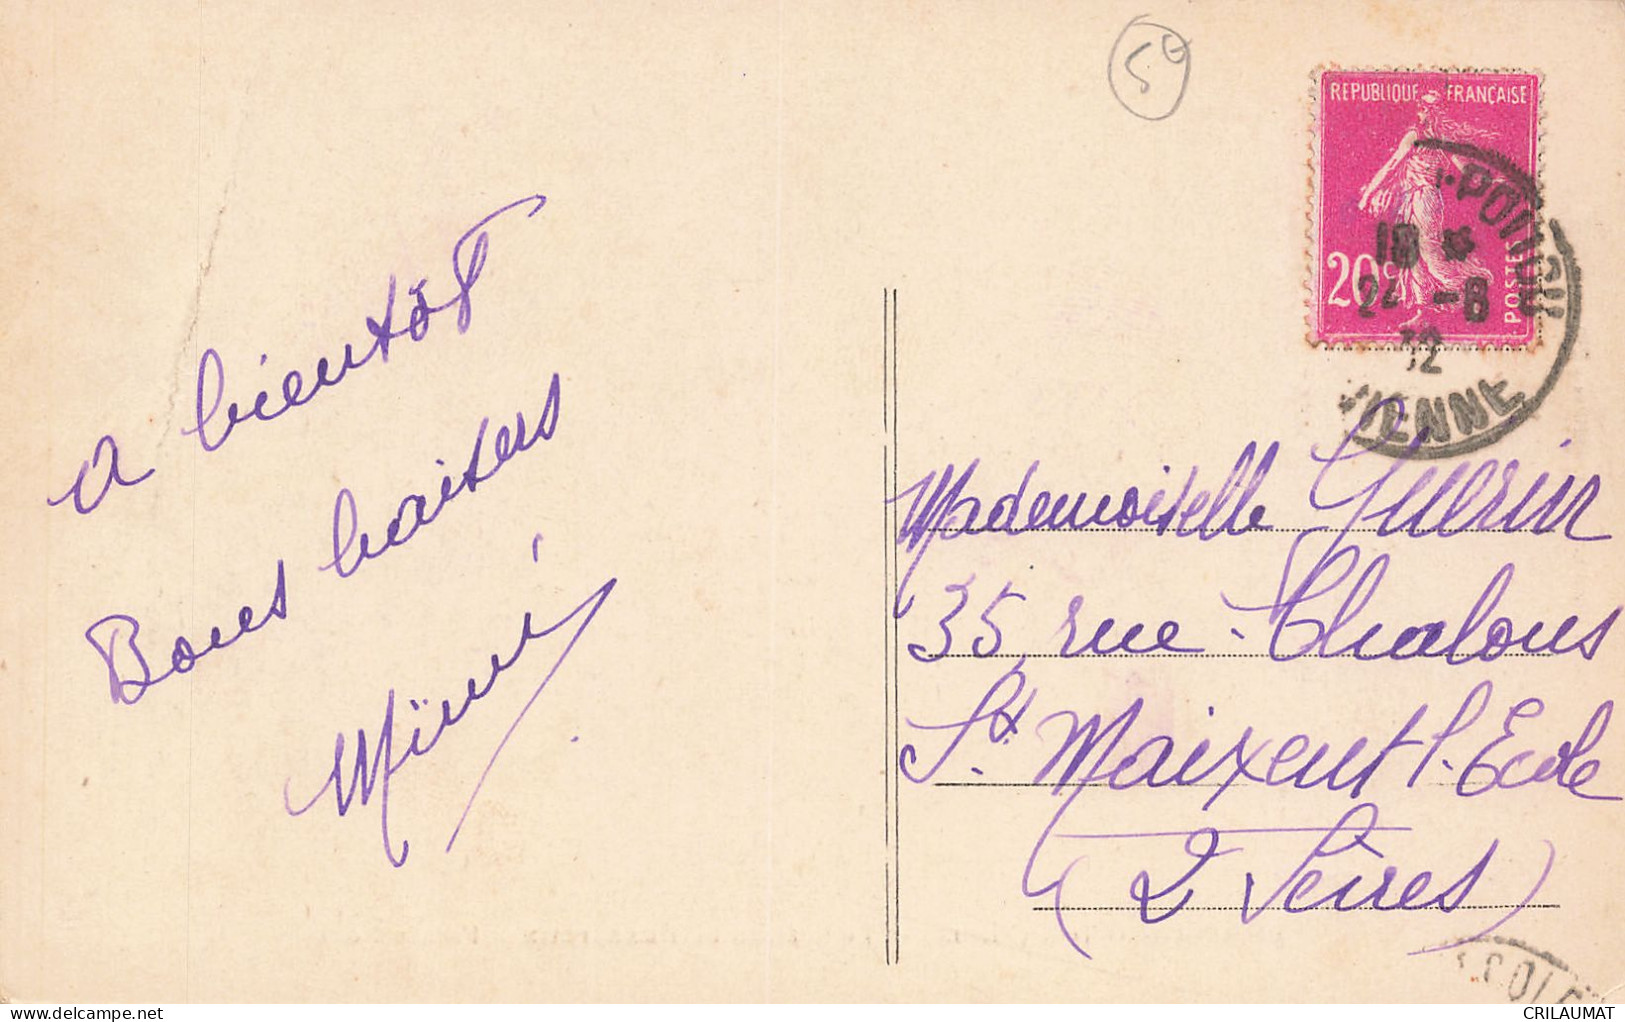 5
REPUBLIQUE FRANÇAISE
20c
POSTES
POITOU
18 *
24 -8
32
VIENNE
a bientôt
Bons baisers
Mimi
Mademoiselle Guerin
35, rue Chalons
St Maixent l'Ecole
(2 Sèvres)
CRILAUMAT